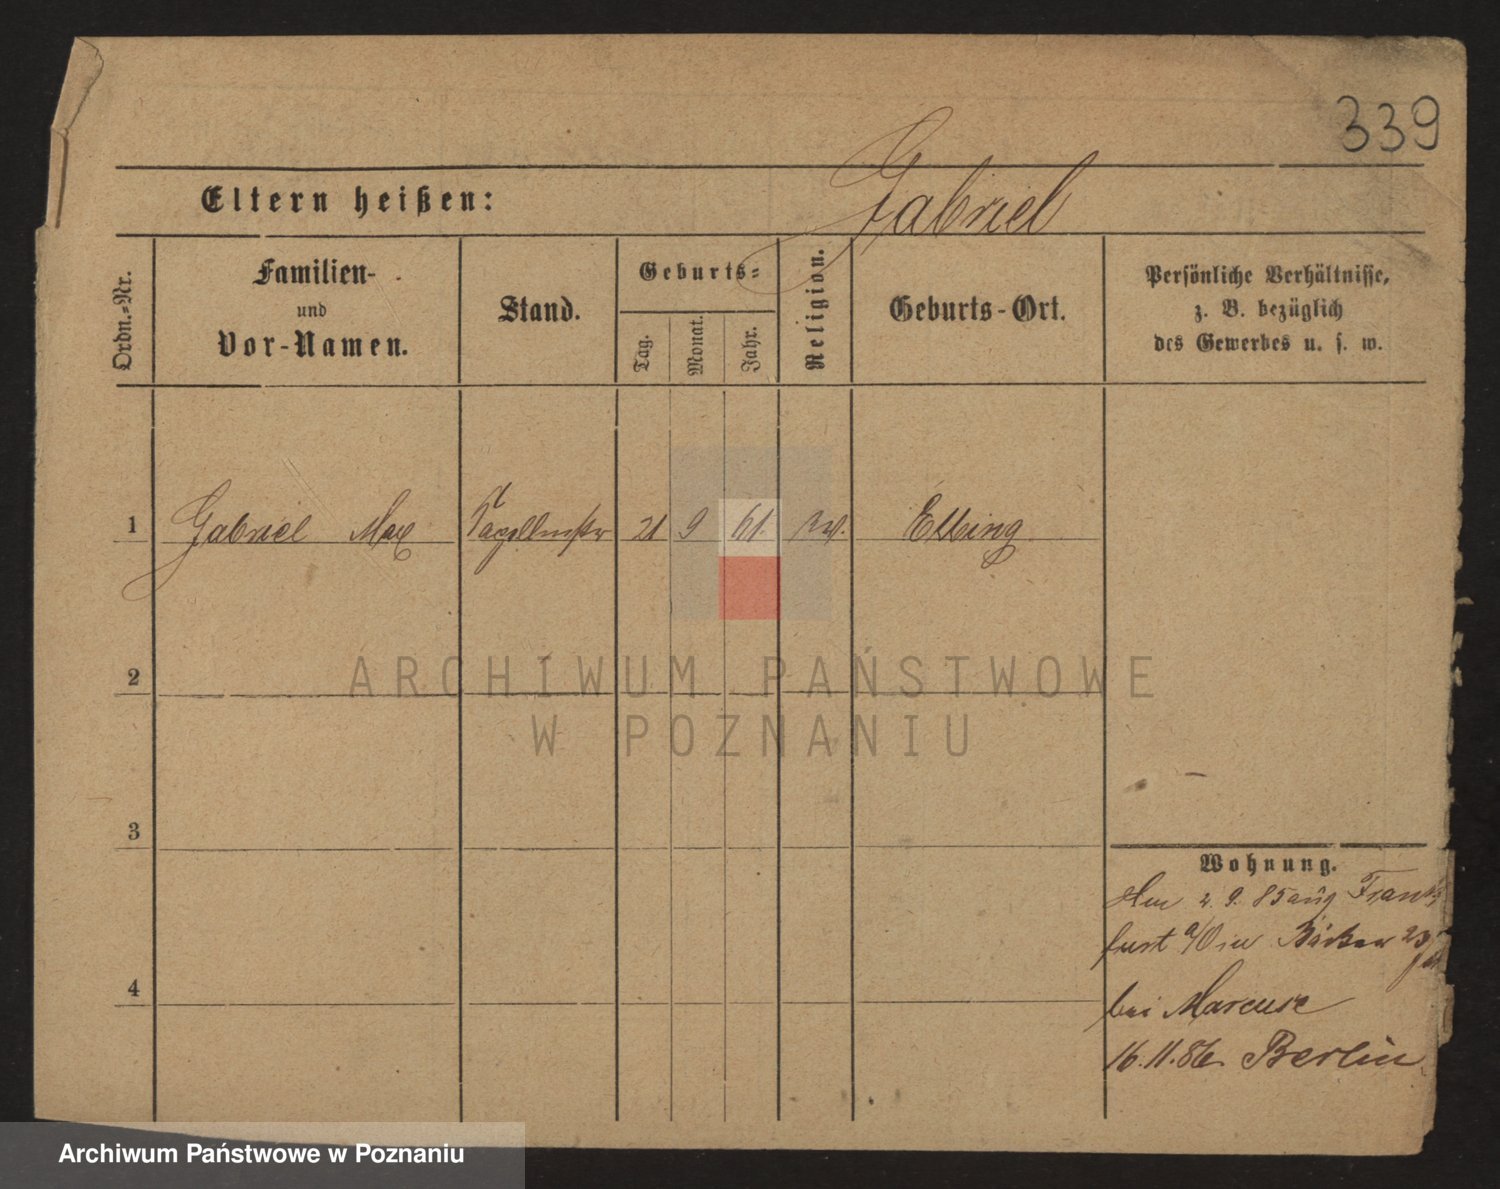 339
Eltern heißen: Gabriel
Ordn.-Nr.
Familien-
und
Vor-Namen.
Stand.
Geburts-
Tag.
Monat.
Jahr.
Religion.
Geburts-Ort.
Persönliche Verhältnisse,
z. B. bezüglich
des Gewerbes u. s. w.
1 Gabriel Max 21 9 61. Elbing
2
ARCHIWUM PAŃSTWOWE
W POZNANIU
3
Wohnung.
9. 85 Frank
furt a/O in 23
4
bei Marcuse
16.11.86. Berlin
Archiwum Państwowe w Poznaniu